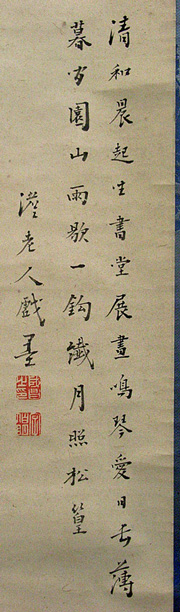 清和晨起坐書堂展畫鳴琴愛日長薄
暮園山雨歇一鈎纖月照松篁
老人戲墨